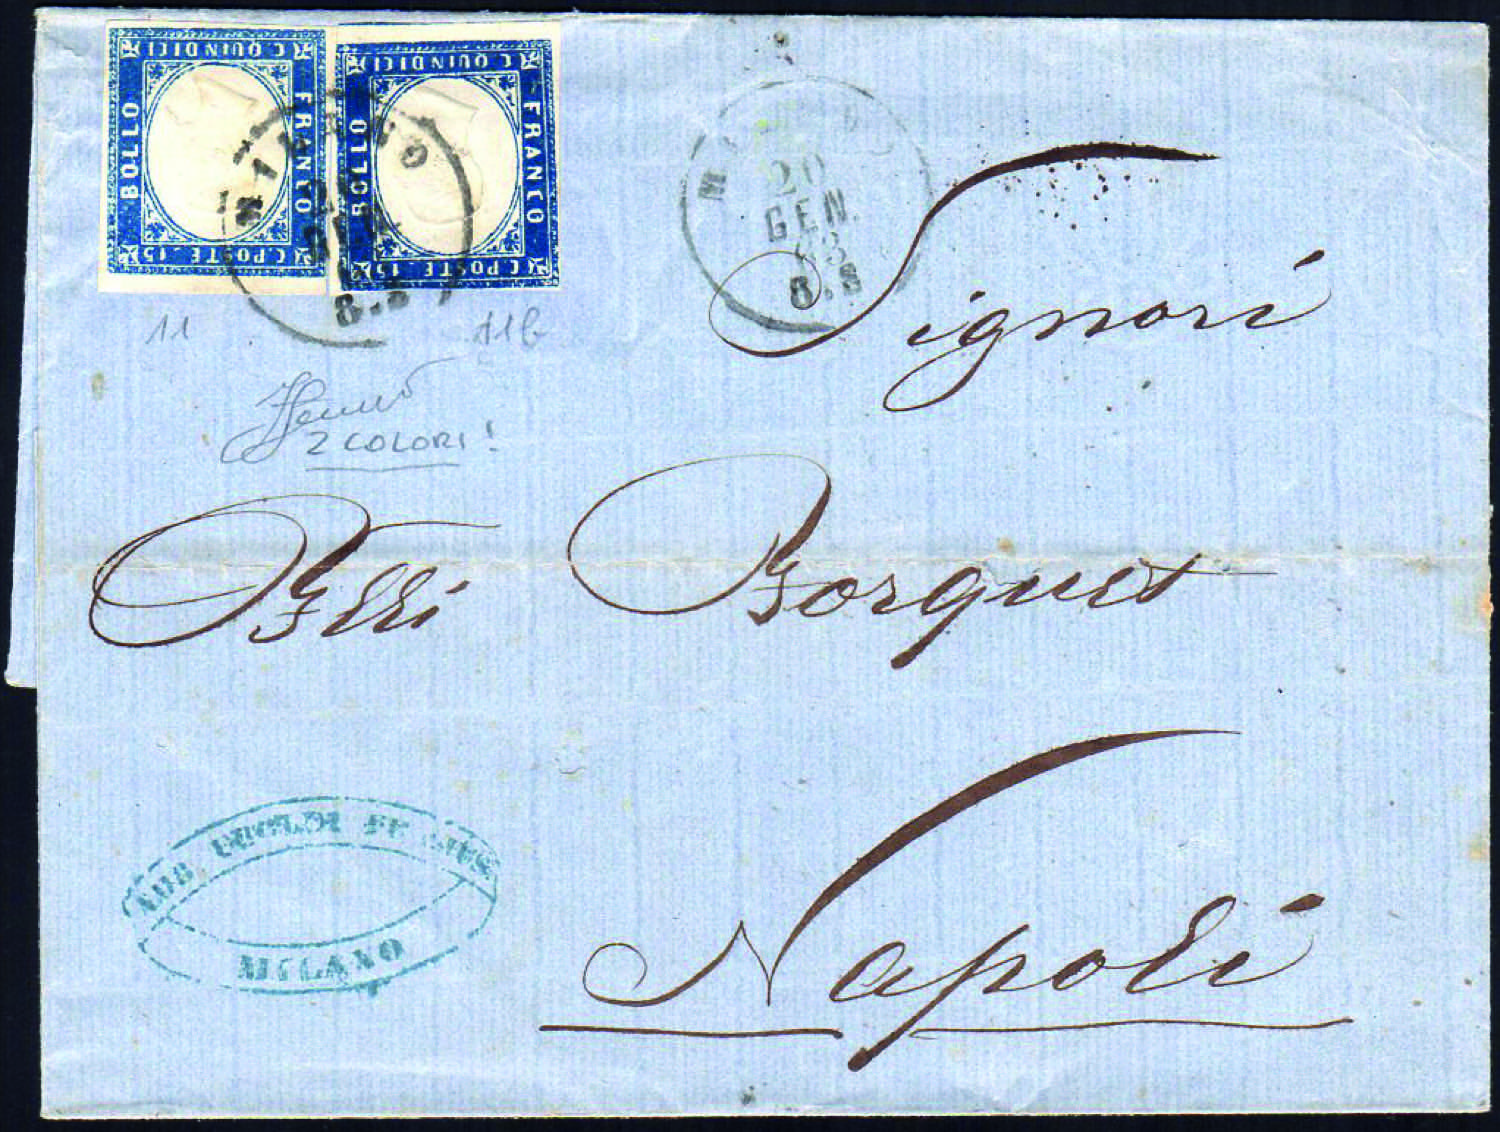 C. QUINDICI
BOLLO
FRANCO
C. POSTE. 15
C. QUINDICI
BOLLO
FRANCO
C. POSTE. 15
MILANO
GEN.
8.S
M
20
GEN.
63
8.S
11
11b
2 COLORI!
Signori
Flli Borguet
Napoli
MILANO